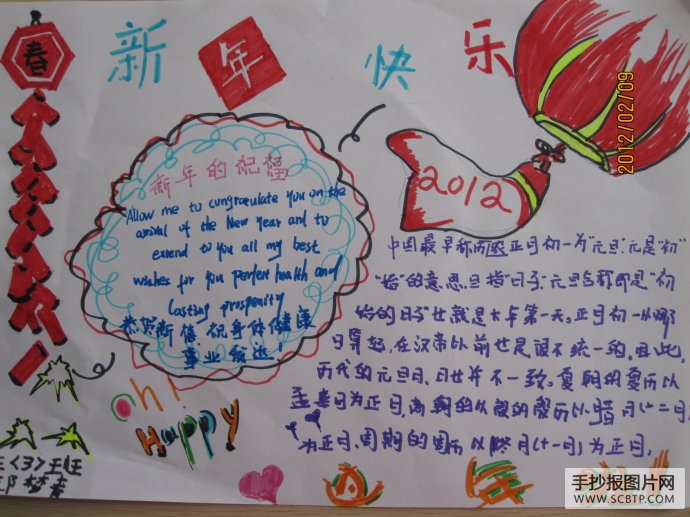 春
新年快乐
2012/02/09
新年的祝福
Allow me to congratulate you on the
arrival of the New Year and to
extend to you all my best
wishes for you perfect health and
lasting prosperity
恭贺新禧,祝身体健康
事业
2012
中国最早称 正月初一为"元旦"元是"初"
"始"的意思,旦指"日子"元旦合称即是"初
始的日子"也就是大年第一天。正月初一从哪
日算起,在汉帝以前也是很不统一的。因此,
历代的元旦日、日廿并不一致。夏朝的夏历以
孟喜月为正月,商朝的 历以腊月(十二月)
为正月,周朝的周历以 月(十一月)为正月。
oh!
Happy
(3)班
年
手抄报图片网
WWW.SCBTP.COM